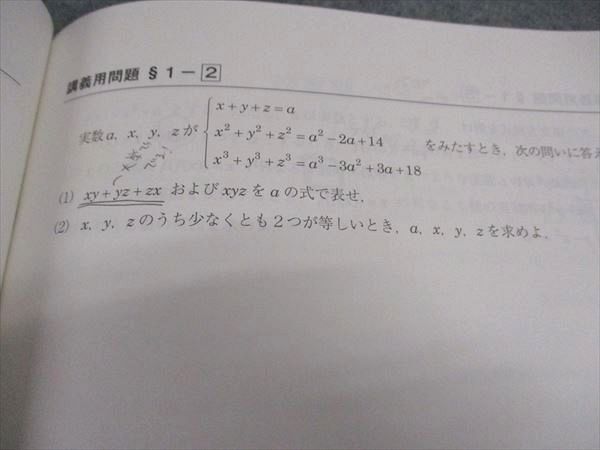 講義用問題 §1-2
実数a, x, y, zが
x+y+z=a
x²+y²+z²=a²-2a+14
x³+y³+z³=a³-3a²+3a+18
をみたすとき,次の問いに答え
(1) xy+yz+zx および xyz を a の式で表せ.
(2) x, y, z のうち少なくとも2つが等しいとき, a, x, y, z を求めよ.